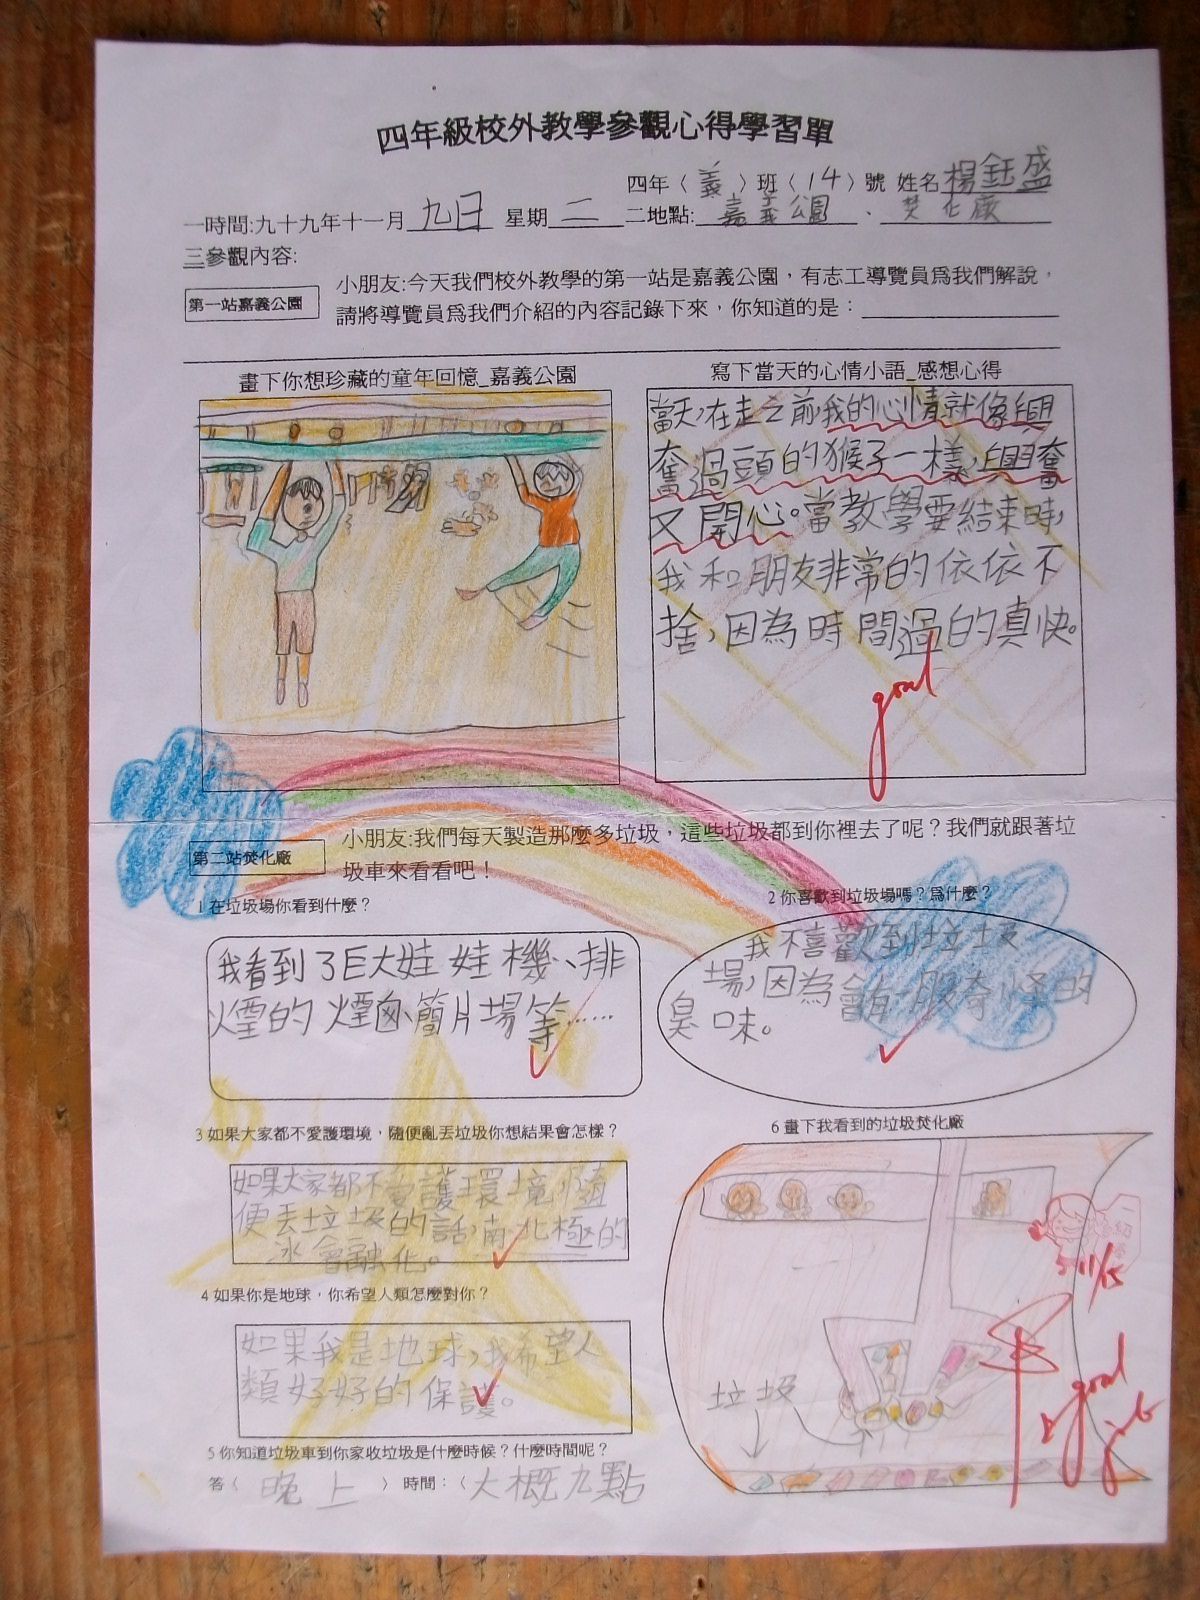 四年級校外教學參觀心得學習單
四年〈義〉班〈14〉號 姓名楊鈺盛
一時間:九十九年十一月九日 星期二 二地點:嘉義公園、焚化廠
三參觀內容:
第一站嘉義公園
小朋友:今天我們校外教學的第一站是嘉義公園，有志工導覽員爲我們解說，
請將導覽員爲我們介紹的內容記錄下來，你知道的是：
畫下你想珍藏的童年回憶_嘉義公園
寫下當天的心情小語_感想心得
當天,在走之前,我的心情就像興
奮過頭的猴子一樣,興奮
又開心。當教學要結束時,
我和朋友非常的依依不
捨,因為時間過的真快。
good
第二站焚化廠
小朋友:我們每天製造那麼多垃圾，這些垃圾都到你裡去了呢？我們就跟著垃
圾車來看看吧！
1 在垃圾場你看到什麼？
我看到了巨大娃娃機、排
煙的煙囪、簡片場等……
2 你喜歡到垃圾場嗎？爲什麼？
我不喜歡到垃圾
場,因為會有一股奇怪的
臭味。
3 如果大家都不愛護環境，隨便亂丟垃圾你想結果會怎樣？
如果大家都不愛護環境,隨
便丟垃圾的話,南北極的
冰會融化。
4 如果你是地球，你希望人類怎麼對你？
如果我是地球,我希望人
類好好的保護。
5 你知道垃圾車到你家收垃圾是什麼時候？什麼時間呢？
答〈晚上〉 時間：〈大概九點
6 畫下我看到的垃圾焚化廠
垃圾
11/15
good